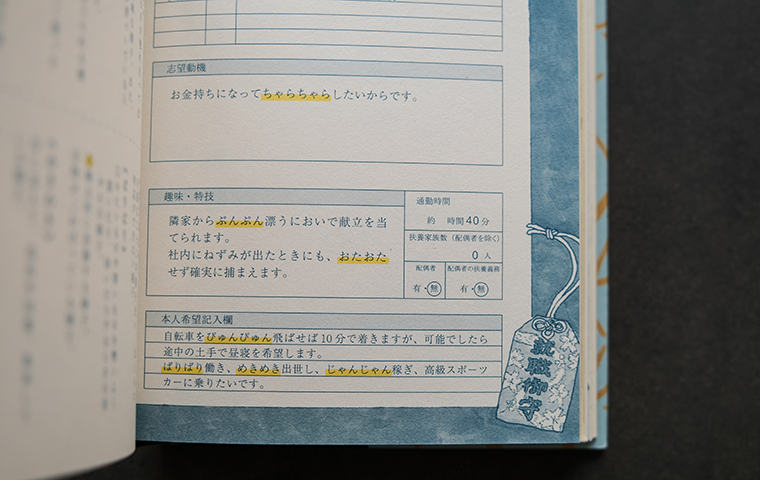 志望動機
お金持ちになってちゃらちゃらしたいからです。
趣味・特技
隣家からぷんぷん漂うにおいで献立を当
てられます。
社内にねずみが出たときにも、おたおた
せず確実に捕まえます。
通勤時間
約 時間40分
扶養家族数（配偶者を除く）
0 人
配偶者
有・無
配偶者の扶養義務
有・無
本人希望記入欄
自転車をびゅんびゅん飛ばせば10分で着きますが、可能でしたら
途中の土手で昼寝を希望します。
ばりばり働き、めきめき出世し、じゃんじゃん稼ぎ、高級スポーツ
カーに乗りたいです。
就職御守